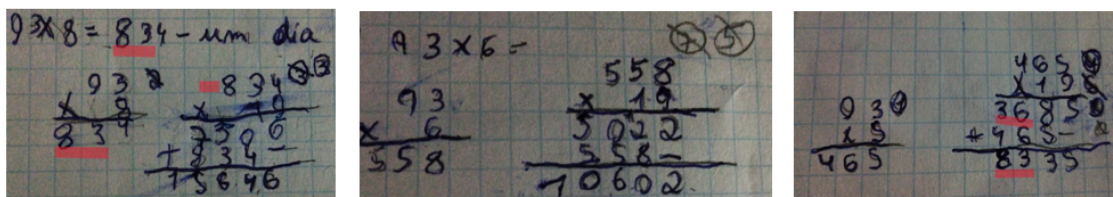 93x8 = 834 - um dia
93
x 8
834
834
x 19
7506
+ 834 -
15646
93 x 6 =
93
x 6
558
558
x 19
5022
558 -
10602
7 5
93
x 5
465
465
x 19
3685
+ 465 -
8335